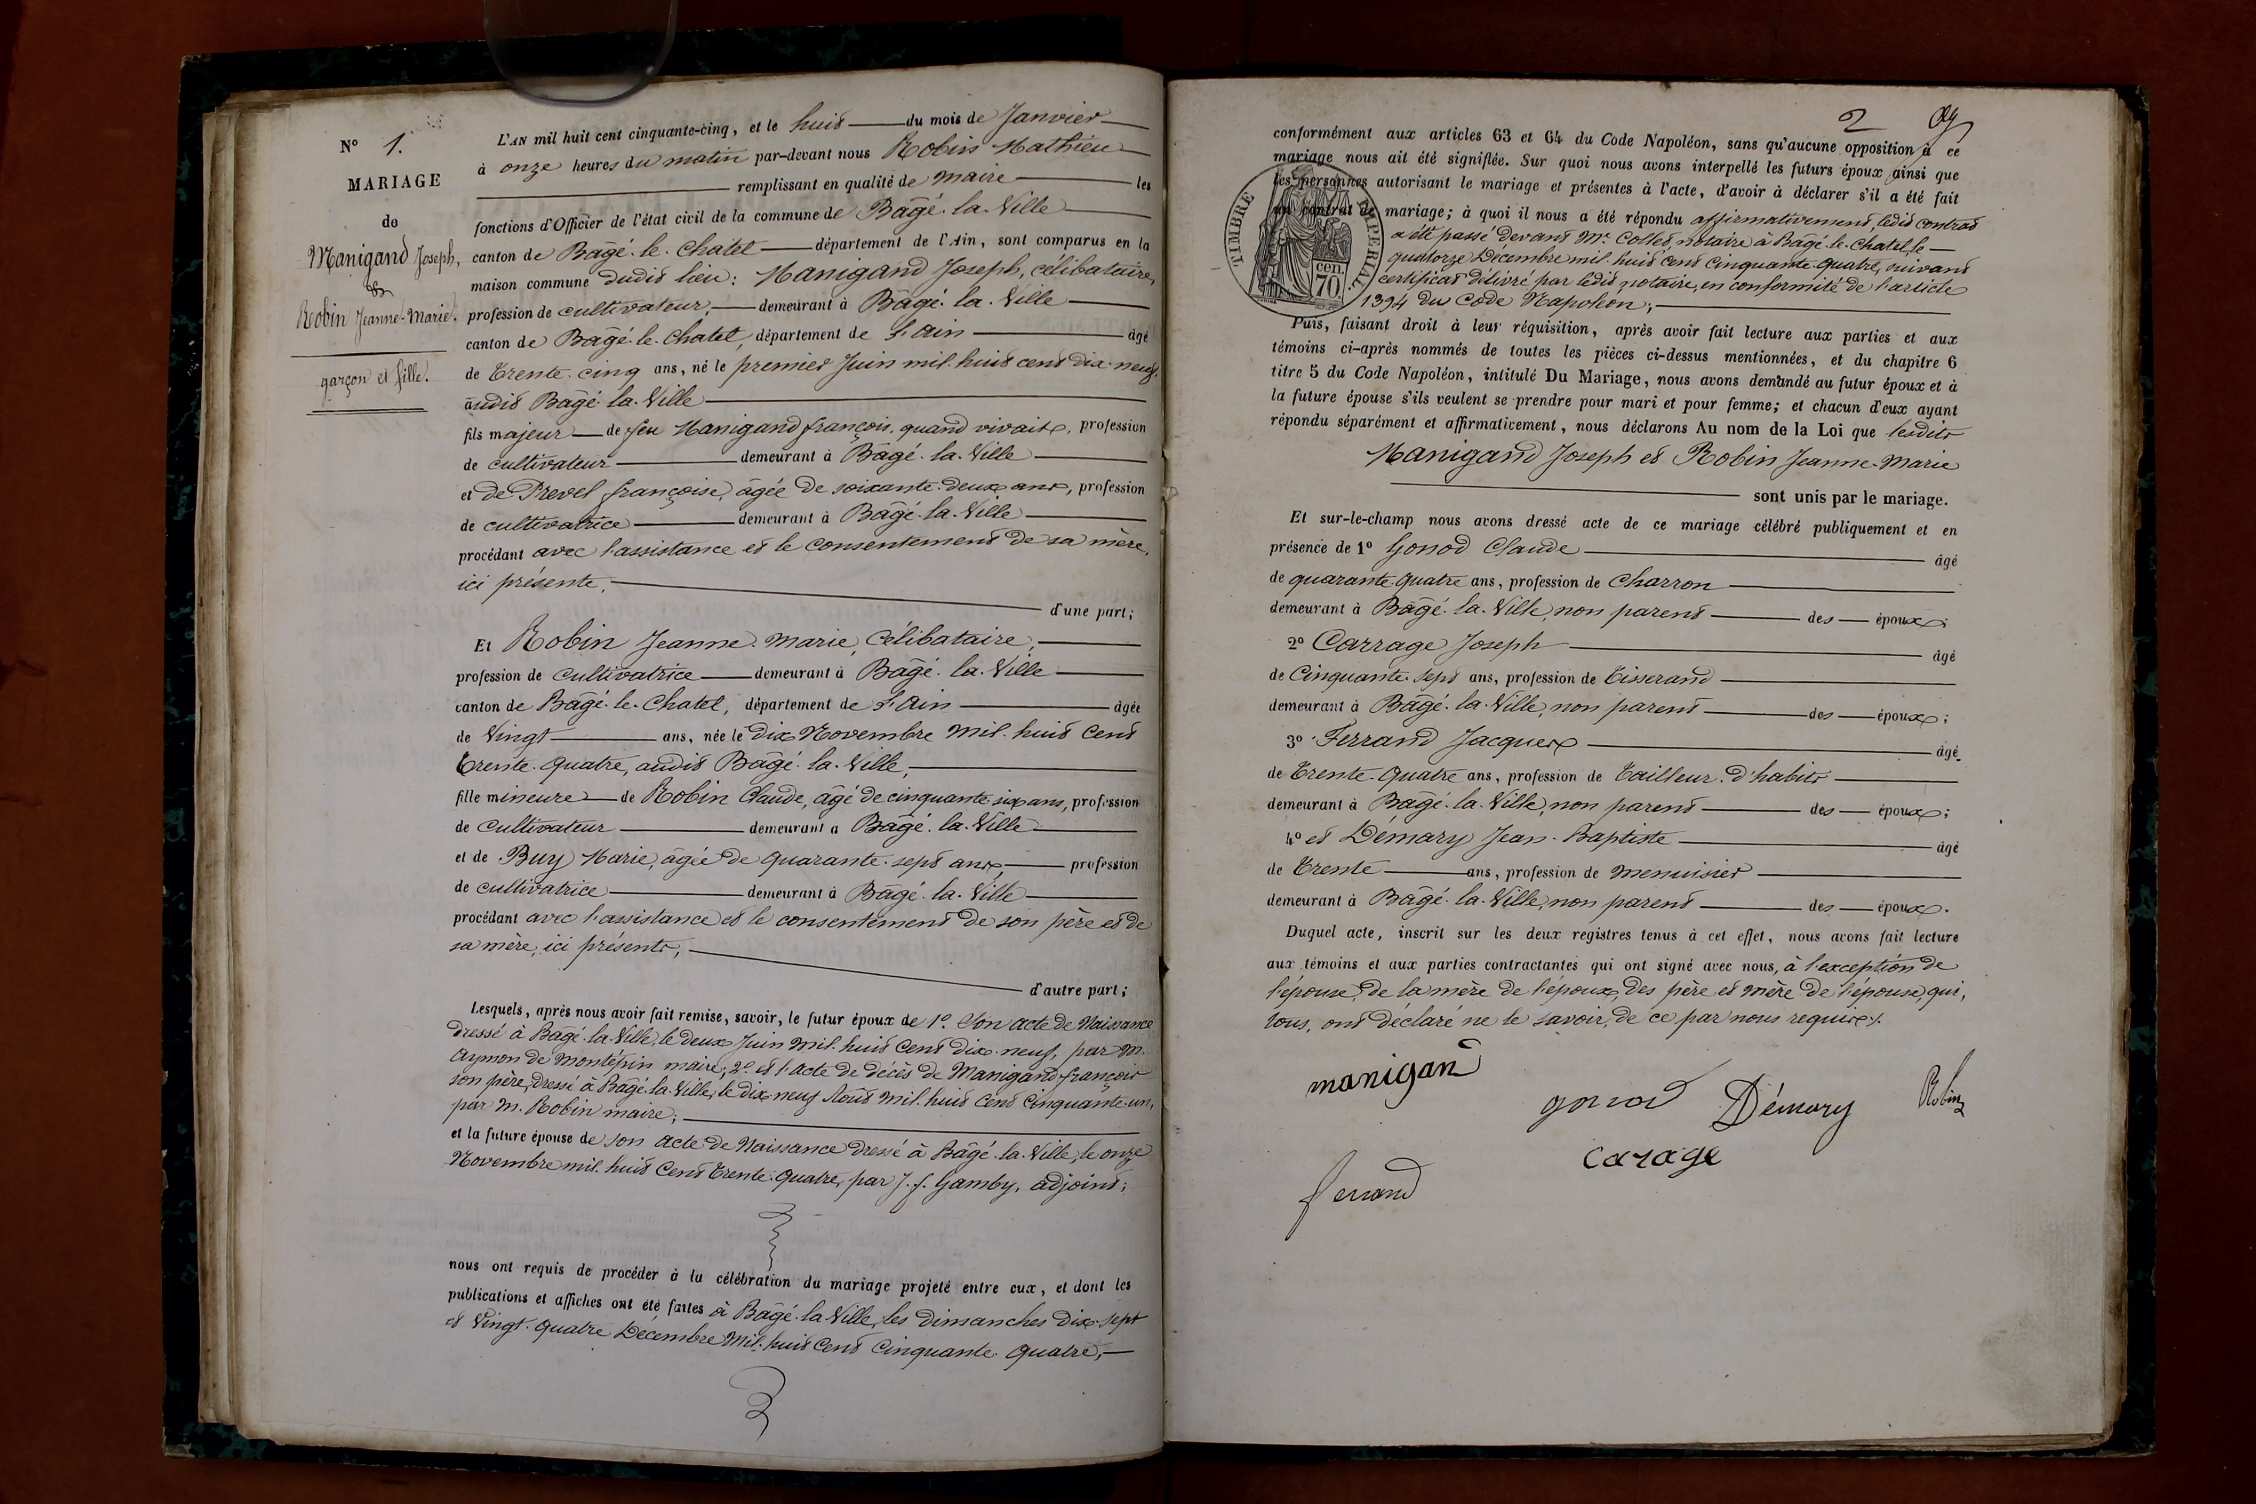 N° 1.
MARIAGE
de
Manigand Joseph,
&
Robin Jeanne-Marie.
garçon et fille.
L'AN mil huit cent cinquante-cinq, et le huit du mois de Janvier
à onze heures du matin par-devant nous Robin Mathieu
remplissant en qualité de maire les
fonctions d'Officier de l'état civil de la commune de Bâgé-la-Ville
canton de Bâgé-le-Chatel département de l'Ain, sont comparus en la
maison commune dudit lieu: Manigand Joseph, célibataire,
profession de cultivateur, demeurant à Bâgé-la-Ville
canton de Bâgé-le-Chatel, département de l'Ain âgé
de trente-cinq ans, né le premier Juin mil-huit cent dix-neuf,
audit Bâgé-la-Ville
fils majeur de feu Manigand françois, quand vivait, profession
de cultivateur demeurant à Bâgé-la-Ville
et de Prevel françoise, âgée de soixante-deux ans, profession
de cultivatrice demeurant à Bâgé-la-Ville
procédant avec l'assistance et le consentement de sa mère,
ici présente, d'une part;
Et Robin Jeanne-Marie, Célibataire,
profession de cultivatrice demeurant à Bâgé-la-Ville
canton de Bâgé-le-Chatel, département de l'Ain âgée
de Vingt ans, née le dix Novembre mil-huit Cent
trente-quatre, audit Bâgé-la-Ville,
fille mineure de Robin Claude, âgé de cinquante-six ans, profession
de cultivateur demeurant à Bâgé-la-Ville
et de Buy Marie, âgée de quarante-sept ans, profession
de cultivatrice demeurant à Bâgé-la-Ville
procédant avec l'assistance et le consentement de son père et de
sa mère, ici présents, d'autre part;
Lesquels, après nous avoir fait remise, savoir, le futur époux de 1°. Son acte de Naissance
dressé à Bâgé-la-Ville, le deux Juin mil-huit Cent dix-neuf, par M.
Aymon de Montépin maire; 2°. et l'acte de décès de Manigand françois
son père, dressé à Bâgé-la-Ville, le dix-neuf Août mil-huit Cent Cinquante-un,
par M. Robin maire;
et la future épouse de son acte de Naissance dressé à Bâgé-la-Ville, le onze
Novembre mil-huit Cent trente-quatre, par J. f. Gamby, adjoint;
nous ont requis de procéder à la célébration du mariage projeté entre eux, et dont les
publications et affiches ont été faites à Bâgé-la-Ville, les dimanches dix-sept
et Vingt-quatre Décembre mil-huit Cent Cinquante-quatre,
2
conformément aux articles 63 et 64 du Code Napoléon, sans qu'aucune opposition à ce
mariage nous ait été signifiée. Sur quoi nous avons interpellé les futurs époux ainsi que
les personnes autorisant le mariage et présentes à l'acte, d'avoir à déclarer s'il a été fait
un contrat de mariage; à quoi il nous a été répondu affirmativement, ledit contrat
a été passé devant Mr. Collet, notaire à Bâgé-le-Chatel, le
quatorze Décembre mil-huit Cent Cinquante-quatre, suivant
certificat délivré par ledit notaire, en conformité de l'article
1394 du Code Napoléon;
TIMBRE IMPERIAL
cen.
70
Puis, faisant droit à leur réquisition, après avoir fait lecture aux parties et aux
témoins ci-après nommés de toutes les pièces ci-dessus mentionnées, et du chapitre 6
titre 5 du Code Napoléon, intitulé Du Mariage, nous avons demandé au futur époux et à
la future épouse s'ils veulent se prendre pour mari et pour femme; et chacun d'eux ayant
répondu séparément et affirmativement, nous déclarons Au nom de la Loi que lesdits
Manigand Joseph et Robin Jeanne-Marie
sont unis par le mariage.
Et sur-le-champ nous avons dressé acte de ce mariage célébré publiquement et en
présence de 1° Gonod Claude âgé
de quarante-quatre ans, profession de Charron
demeurant à Bâgé-la-Ville, non parent des époux;
2° Carrage Joseph âgé
de Cinquante-sept ans, profession de Tisserand
demeurant à Bâgé-la-Ville, non parent des époux;
3° Ferrand Jacques âgé
de trente-quatre ans, profession de tailleur d'habits
demeurant à Bâgé-la-Ville, non parent des époux;
4° et Démary Jean-Baptiste âgé
de trente ans, profession de menuisier
demeurant à Bâgé-la-Ville, non parent des époux.
Duquel acte, inscrit sur les deux registres tenus à cet effet, nous avons fait lecture
aux témoins et aux parties contractantes qui ont signé avec nous, à l'exception de
l'épouse, de la mère de l'époux, des père et mère de l'épouse, qui,
tous, ont déclaré ne le savoir, de ce par nous requis.
manigand
gonod Démary Robin
carage
ferrand